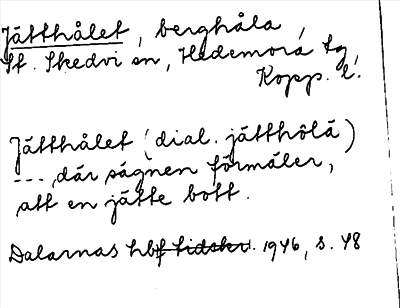 Jätthålet, berghåla,
St. Skedvi sn, Hedemora tg,
Kopp. l.
Jätthålet (dial. jätthôlä)
--- där sägnen förmäler,
att en jätte bott.
Dalarnas hbf tidskr. 1946, s. 48